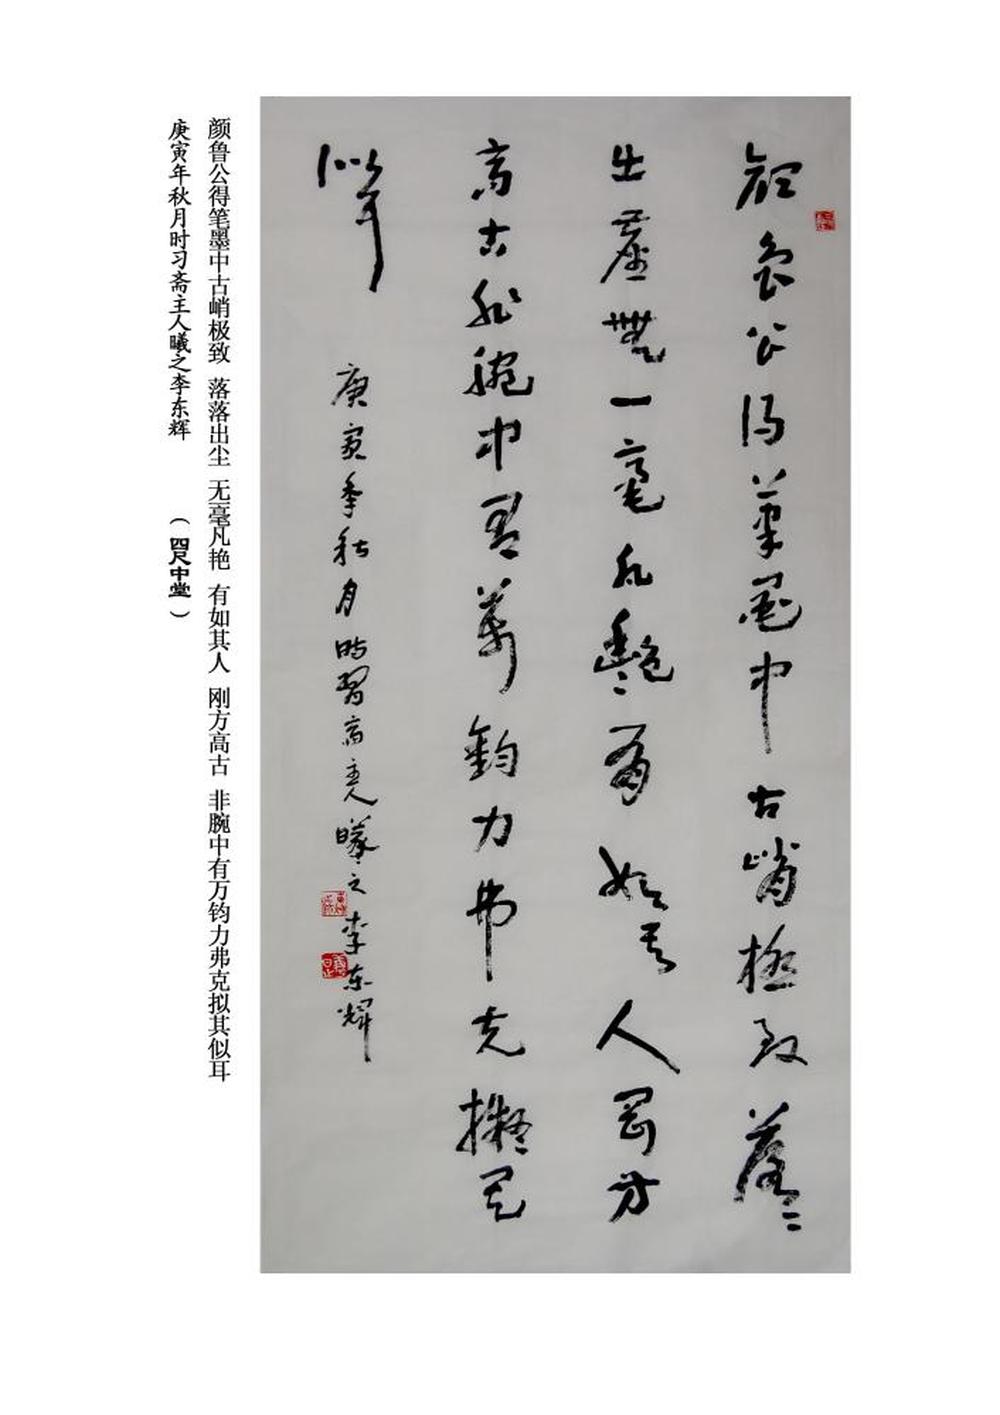 顔魯公得筆墨中古峭極致落〻
出塵無一毫凡艷有如其人剛方
高古非腕中有萬鈞力弗克擬其
似耳
庚寅年秋月時習斋主人曦之李东輝
颜鲁公得笔墨中古峭极致 落落出尘 无一毫凡艳 有如其人 刚方高古 非腕中有万钧力弗克拟其似耳
庚寅年秋月时习斋主人曦之李东辉 （四尺中堂）